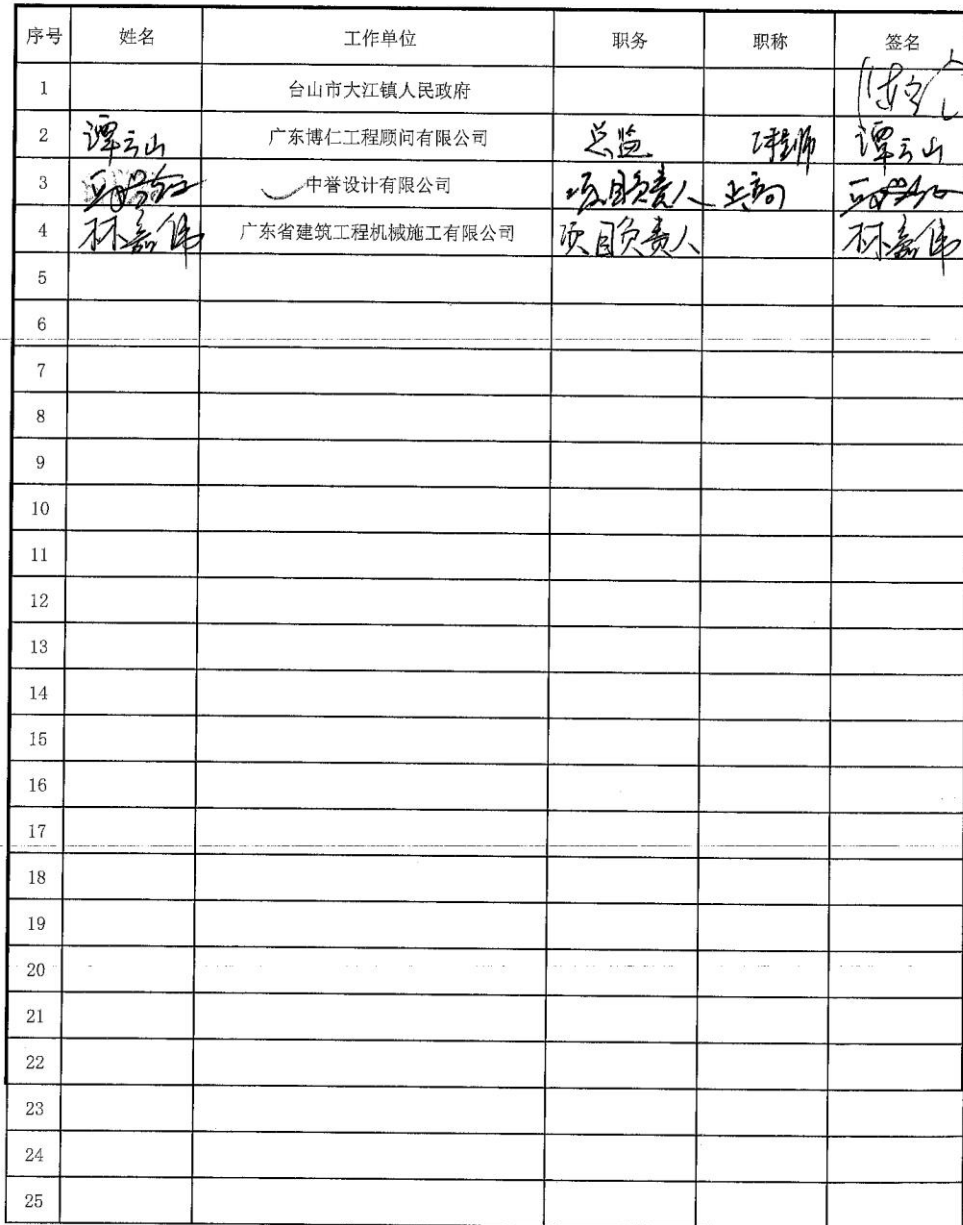 序号 姓名 工作单位 职务 职称 签名
1 台山市大江镇人民政府
2 谭云山 广东博仁工程顾问有限公司 总监 工程师 谭云山
3 中誉设计有限公司 项目负责人
4 林嘉伟 广东省建筑工程机械施工有限公司 项目负责人 林嘉伟
5
6
7
8
9
10
11
12
13
14
15
16
17
18
19
20
21
22
23
24
25